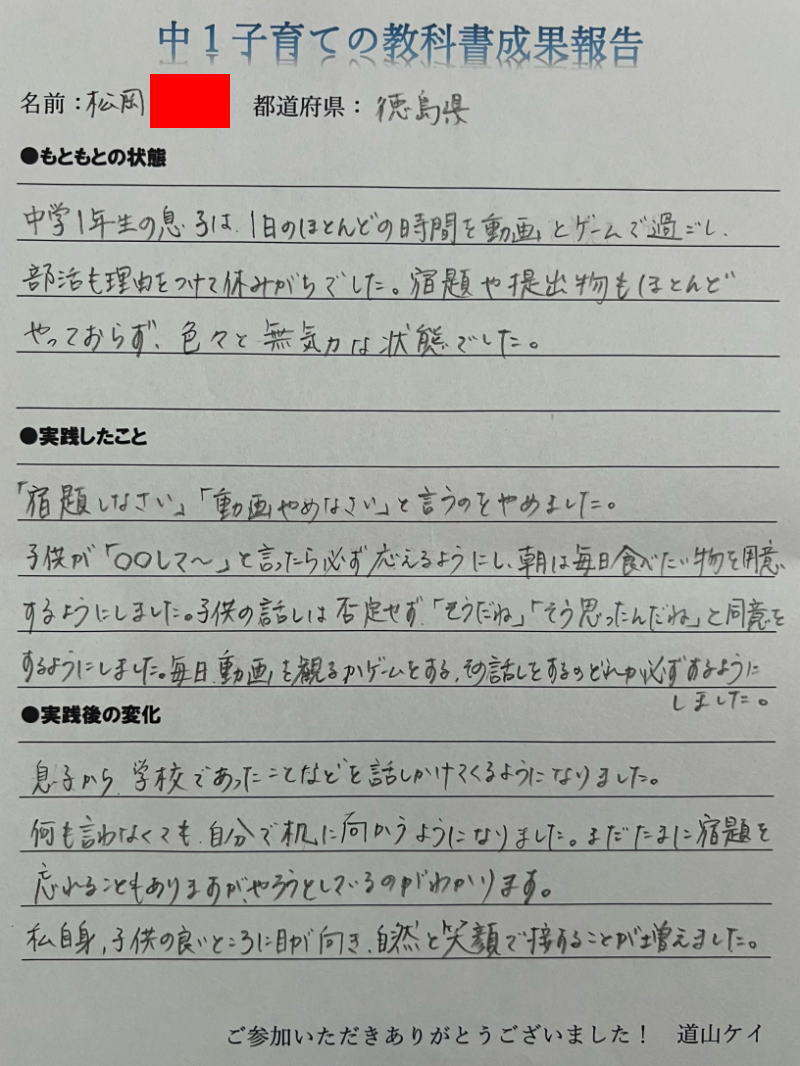 中１子育ての教科書成果報告
名前：松岡 都道府県： 徳島県
●もともとの状態
中学1年生の息子は、1日のほとんどの時間を動画とゲームで過ごし、
部活も理由をつけて休みがちでした。宿題や提出物もほとんど
やっておらず、色々と無気力な状態でした。
●実践したこと
「宿題しなさい」「動画やめなさい」と言うのをやめました。
子供が「〇〇して～」と言ったら必ず応えるようにし、朝は毎日食べたい物を用意
するようにしました。子供の話しは否定せず、「そうだね」「そう思ったんだね」と同意を
するようにしました。毎日、動画を観るかゲームをする、その話しをするのどれか必ずするように
しました。
●実践後の変化
息子から、学校であったことなどを話しかけてくるようになりました。
何も言わなくても、自分で机に向かうようになりました。まだたまに宿題を
忘れることもありますが、やろうとしているのがわかります。
私自身、子供の良いところに目が向き、自然と笑顔で接することが増えました。
ご参加いただきありがとうございました！ 道山ケイ